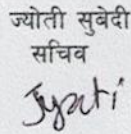 ज्योती सुवेदी
सचिव
Jyoti